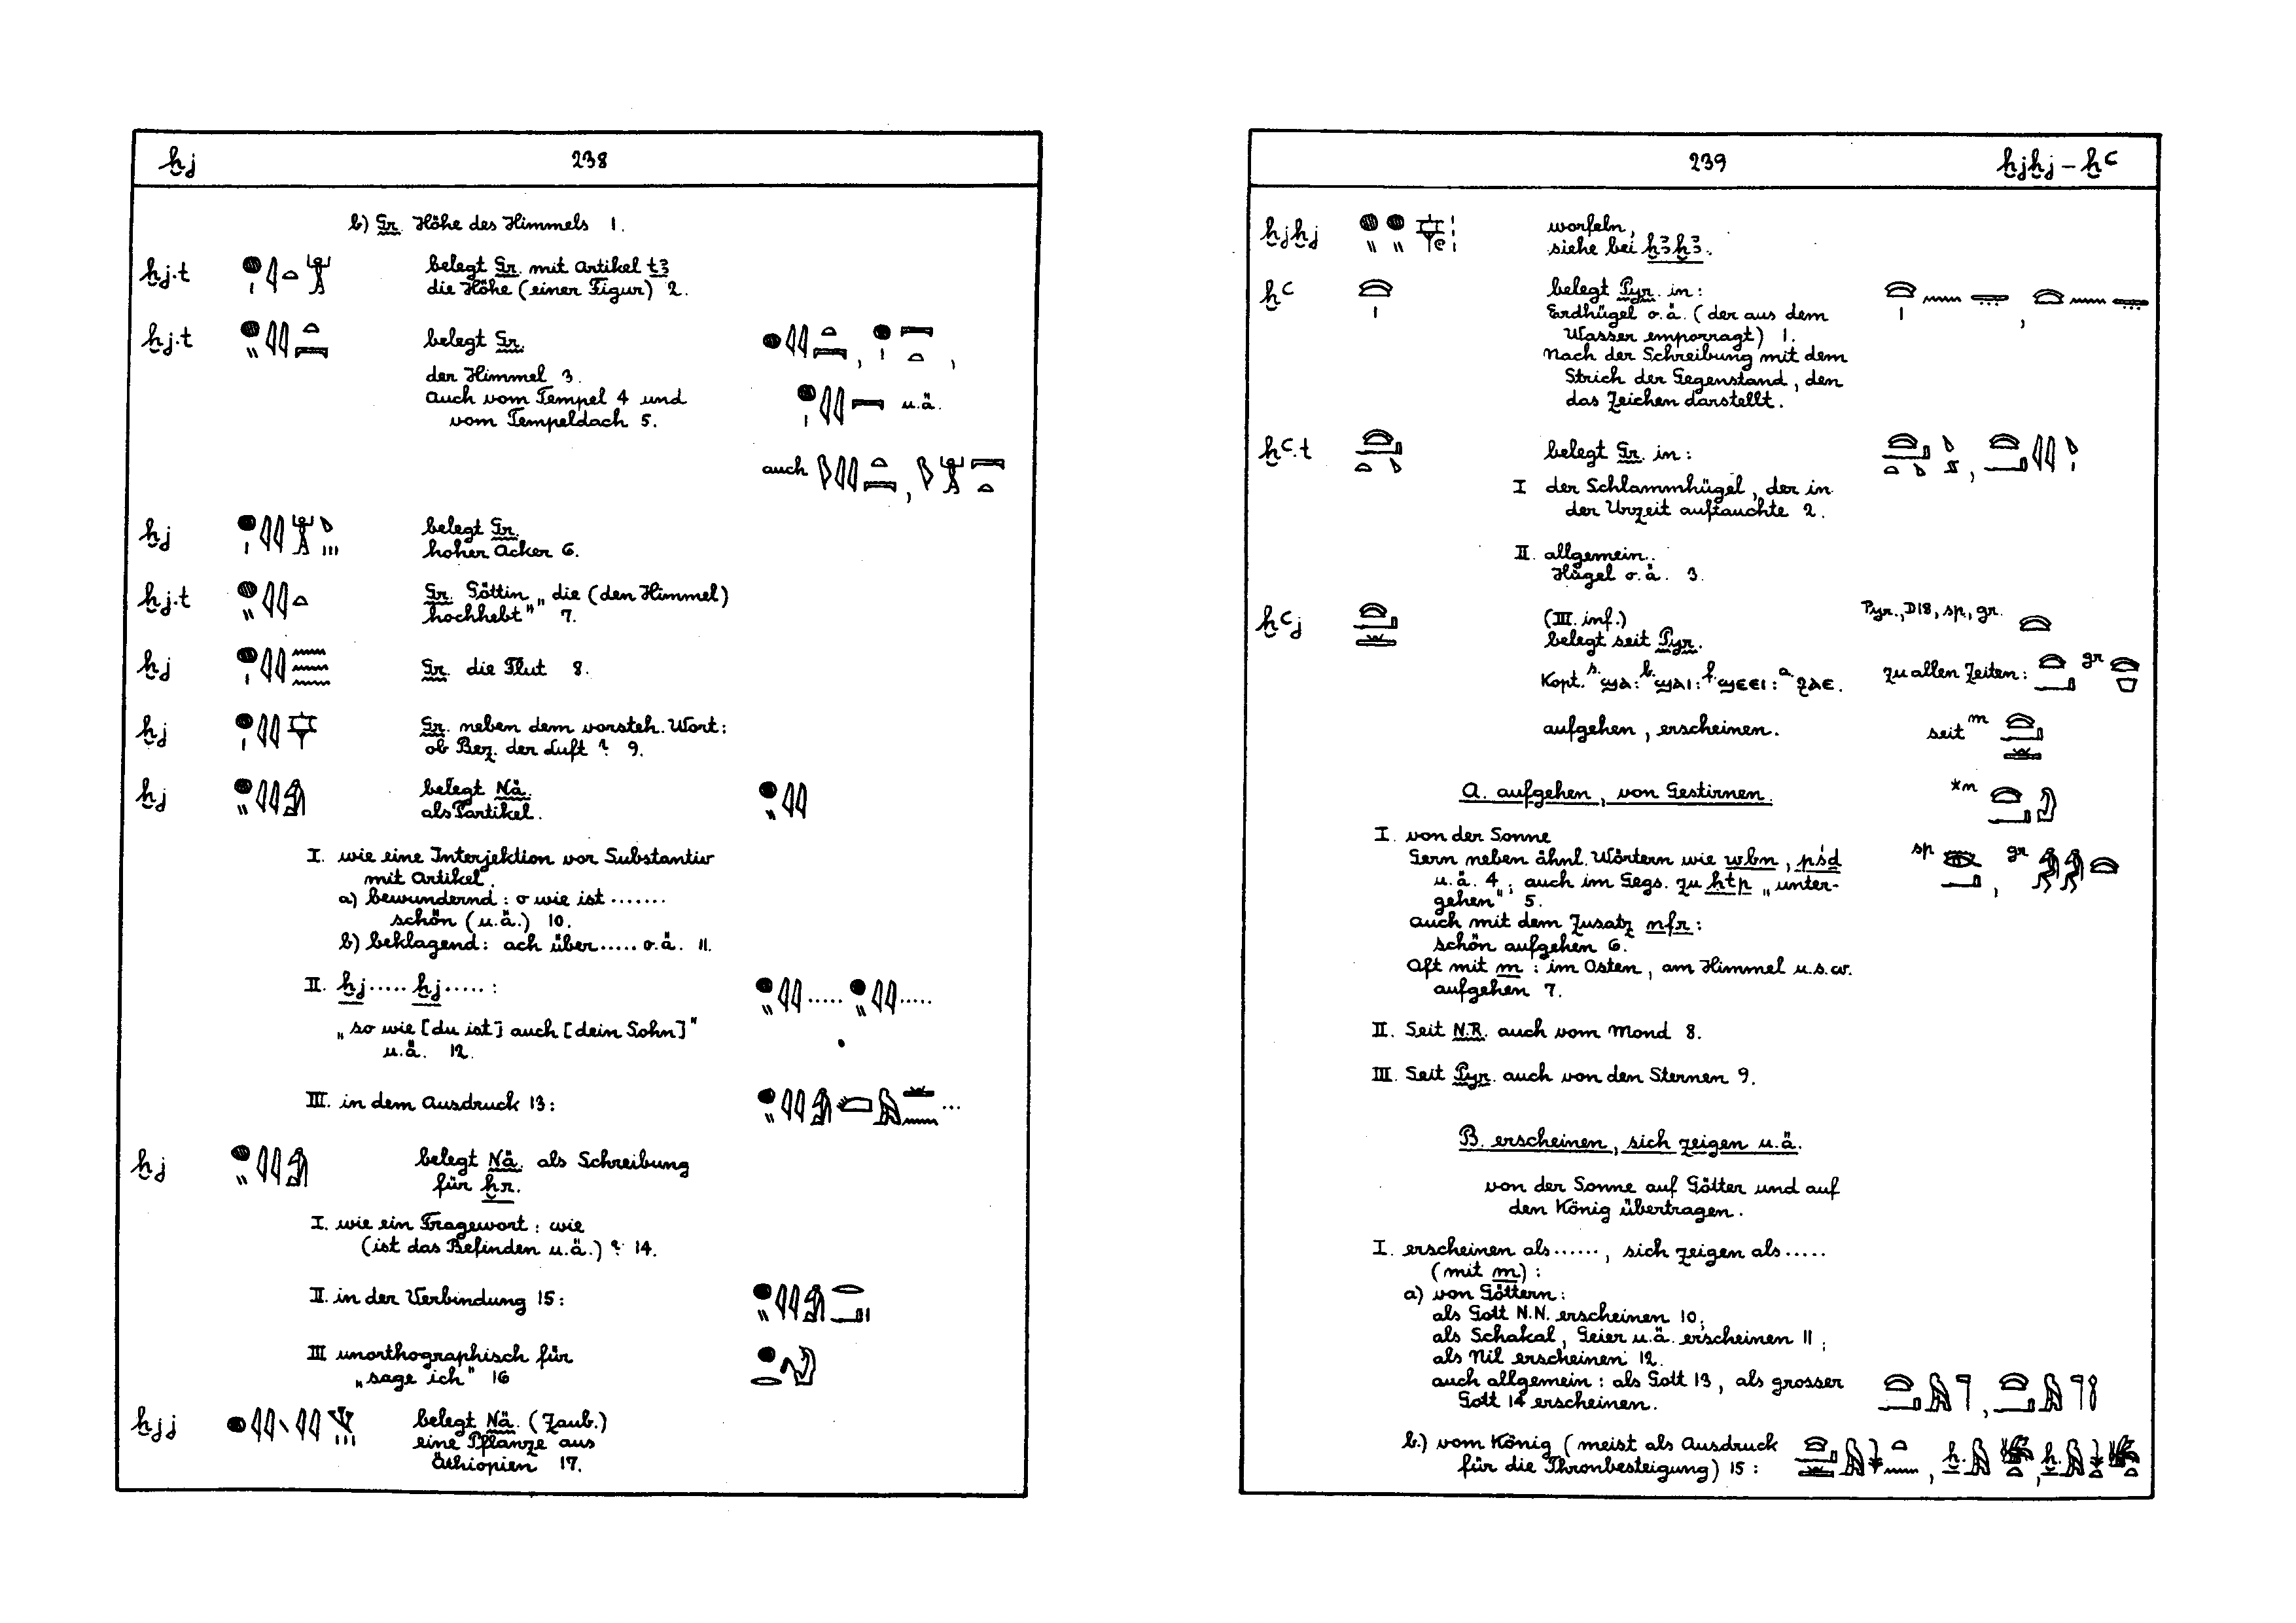 ḫj 238
b) Gr. Höhe des Himmels 1.
ḫj.t belegt Gr. mit Artikel tꜣ
die Höhe (einer Figur) 2.
ḫj.t belegt Gr.
der Himmel 3.
auch vom Tempel 4 und
vom Tempeldach 5.
u.ä.
auch
ḫj belegt Gr.
hoher Acker 6.
ḫj.t Gr. Göttin „die (den Himmel)
hochhebt" 7.
ḫj Gr. die Flut 8.
ḫj Gr. neben dem vorsteh. Wort:
ob Bez. der Luft? 9.
ḫj belegt Nä.
als Partikel.
I. wie eine Interjektion vor Substantiv
mit Artikel.
a) bewundernd: o wie ist .......
schön (u.ä.) 10.
b) beklagend: ach über..... o.ä. 11.
II. ḫj..... ḫj.....:
„so wie [du ist] auch [dein Sohn]"
u.ä. 12.
III. in dem Ausdruck 13:
ḫj belegt Nä. als Schreibung
für ḫr.
I. wie ein Fragewort: wie
(ist das Befinden u.ä.)? 14.
II. in der Verbindung 15:
III unorthographisch für
„sage ich" 16
ḫjj belegt Nä. (Zaub.)
eine Pflanze aus
Äthiopien 17.
239 ḫjḫj – ḫꜥ
ḫjḫj worfeln,
siehe bei ḫꜣḫꜣ.
ḫꜥ belegt Pyr. in:
Erdhügel o.ä. (der aus dem
Wasser emporragt) 1.
Nach der Schreibung mit dem
Strich der Gegenstand, den
das Zeichen darstellt.
ḫꜥ.t belegt Gr. in:
I der Schlammhügel, der in
der Urzeit auftauchte 2.
II. allgemein.
Hügel o.ä. 3.
ḫꜥj (III. inf.) Pyr., D18, sp., gr.
belegt seit Pyr.
Kopt. s. ϣⲁ: b. ϣⲁⲓ: f. ϣⲉⲉⲓ: a. ϩⲁⲉ. zu allen Zeiten: gr
aufgehen, erscheinen. seit m
A. aufgehen, von Gestirnen. *m
I. von der Sonne
Gern neben ähnl. Wörtern wie wbn, pśd sp gr
u.ä. 4; auch im Gegs. zu ḥtp „unter-
gehen" 5.
auch mit dem Zusatz nfr:
schön aufgehen 6.
Oft mit m: im Osten, am Himmel u.s.w.
aufgehen 7.
II. Seit N.R. auch vom Mond 8.
III. Seit Pyr. auch von den Sternen 9.
B. erscheinen, sich zeigen u.ä.
von der Sonne auf Götter und auf
den König übertragen.
I. erscheinen als......, sich zeigen als.....
(mit m):
a) von Göttern:
als Gott N.N. erscheinen 10;
als Schakal, Geier u.ä. erscheinen 11;
als Nil erscheinen 12.
auch allgemein: als Gott 13, als grosser
Gott 14 erscheinen.
b.) vom König (meist als Ausdruck
für die Thronbesteigung) 15: